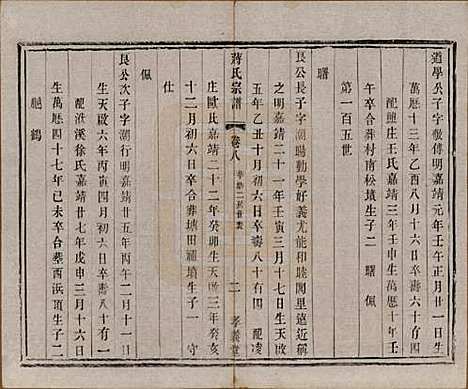 道學公子字敬傳明嘉靖元年壬午正月廿一日生
萬曆十三年乙酉八月十六日卒壽六十有四
配鮑庄王氏嘉靖三年壬申生萬曆十年壬
午卒合葬村南松墳生子二 曙 佩
第一百五世
曙
良公長子字潮暘勤學好義尤能和睦閭里遠近稱
之明嘉靖二十一年壬寅三月十七日生天啟
五年乙丑十月初六日卒壽八十有四 配凌
蔣氏宗譜 卷八 二 孝義堂
庄歐氏嘉靖二十二年癸卯生天啟三年癸亥
十二月初六日卒合葬塘田襧墳生子一 守
仕
佩
良公次子字潮行明嘉靖廿五年丙午二月十一日
生天啟六年丙寅四月初六日卒壽八十有一
配沚溪徐氏嘉靖廿七年戊申三月十六日
生萬曆四十七年己未卒合葬西浜頂生子二
鶴